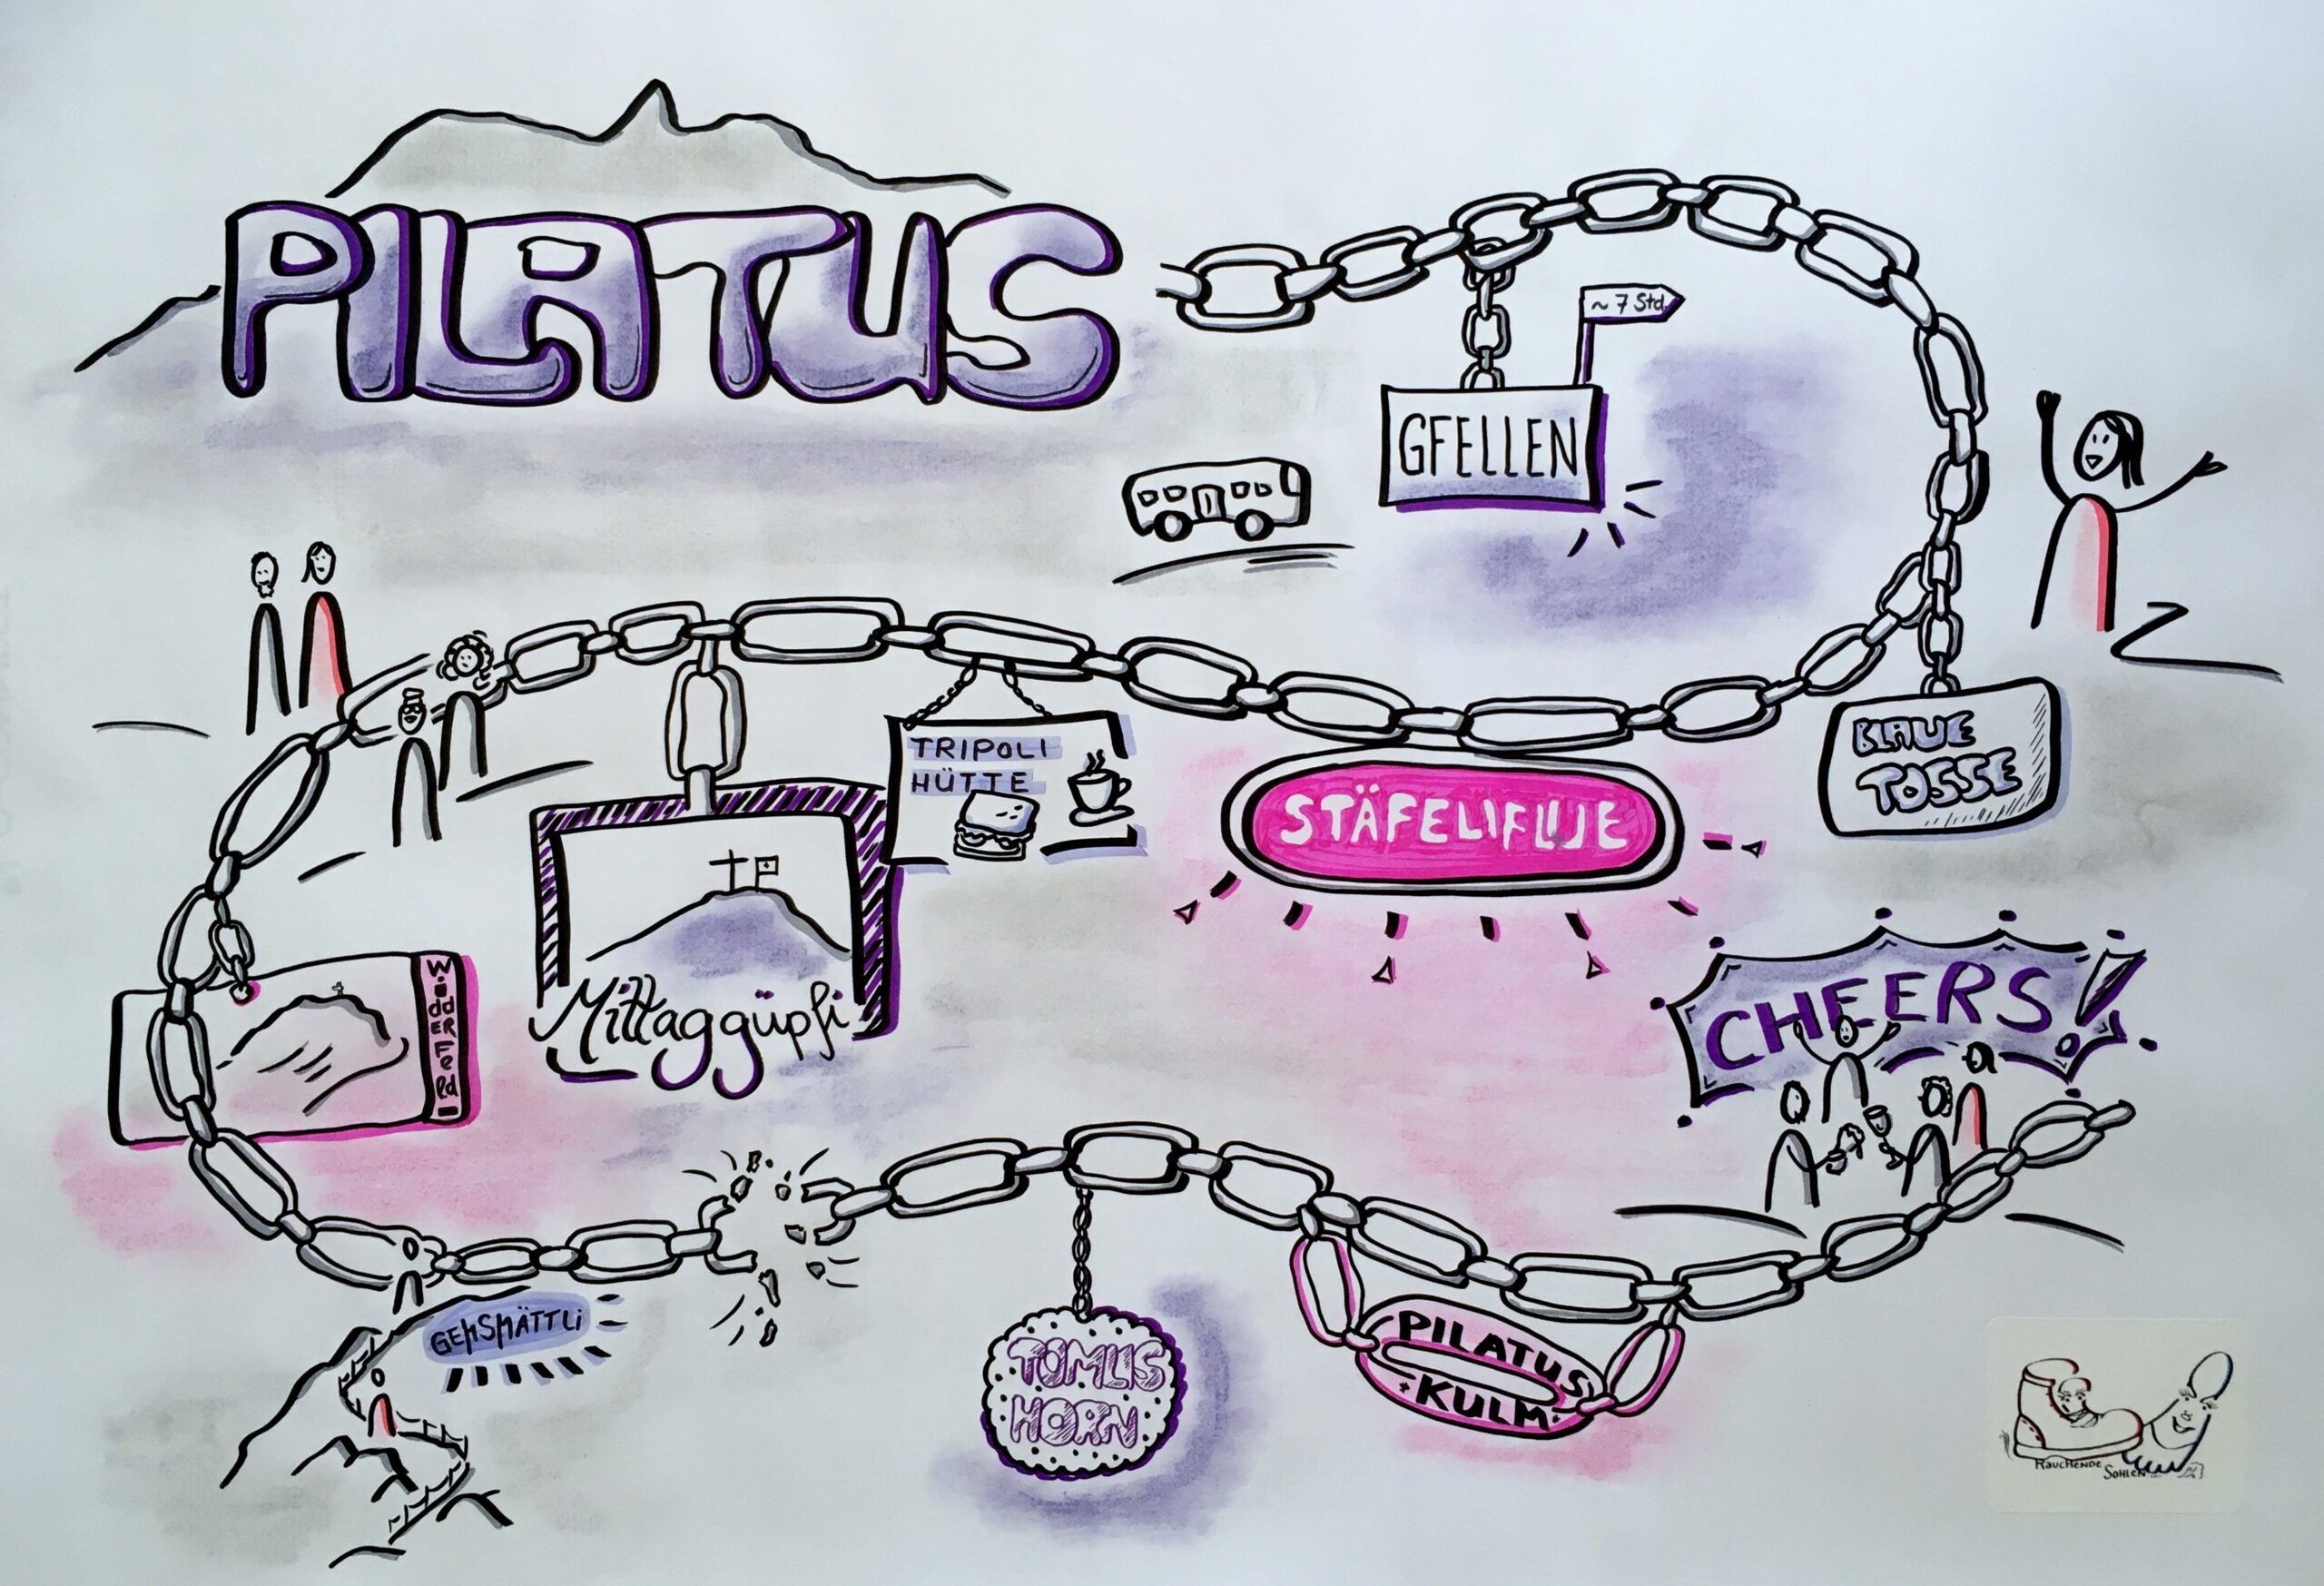 PILATUS
~ 7 Std.
GFELLEN
BLAUE
TOSSE
STÄFELIFLUE
TRIPOLI
HÜTTE
Mittaggüpfi
WiddERFeld
GEMSMÄTTLi
TOMLIS
HORN
PILATUS
KULM
CHEERS!
RAUCHENDE
SOHLEN